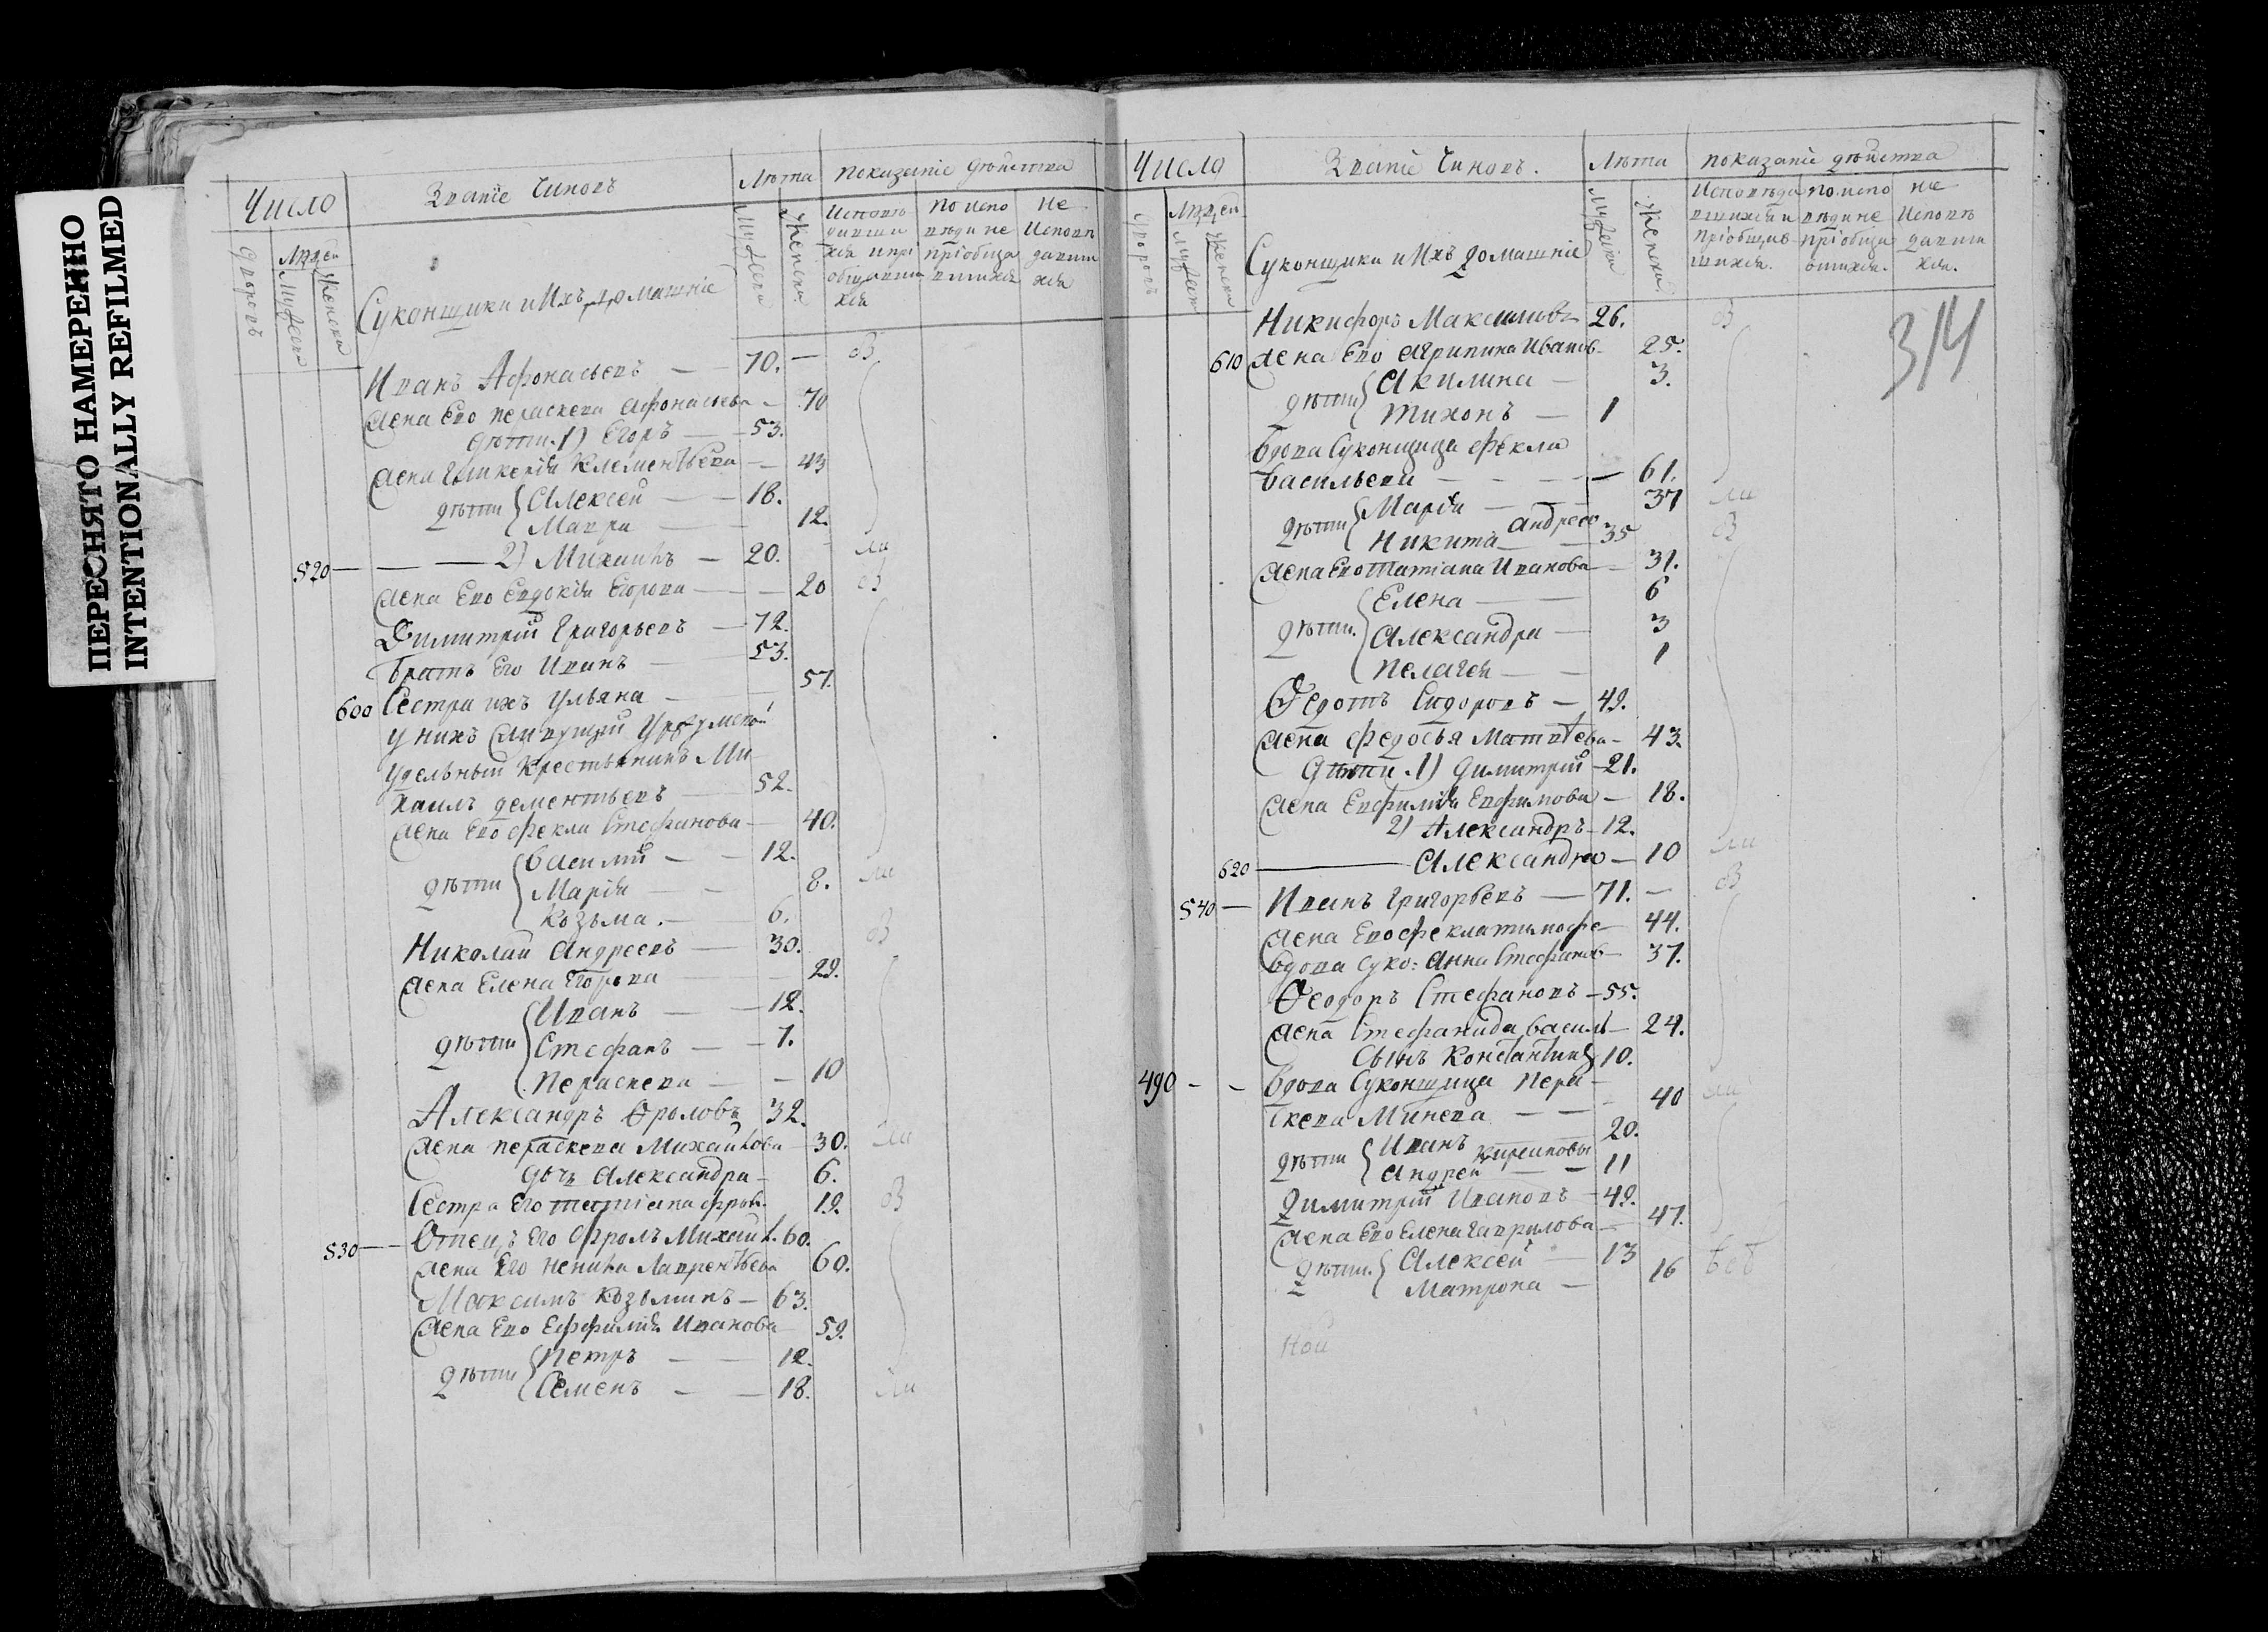 ПЕРЕСНЯТО НАМЕРЕННО
INTENTIONALLY REFILMED
Число
Званіе Чиновъ
Лѣта
показаніе дѣйства
Дворовъ
Людей
Мужеска
Женска
Мужеска
Женска
Исповѣ
давши
хся и прі
общивши
хся
по испо
вѣди не
пріобща
вшихся
не
Исповѣ
давши
хся
Суконщики и Ихъ домашніе
Иванъ Афонасьевъ — 70. — в
Жена Его пераскева Афонасьева — 70
дѣти. 1) Егоръ — 53.
Жена Гликерія Клементьева — 43
дѣти Алексей — 18.
Мавра — 12.
520 — 2) Михаилъ — 20. ми
Жена Ево Евдокія Егорова — 20 в
Димитрій Григорьевъ — 72.
братъ Его Иванъ — 53.
600 Сестра ихъ Ульяна — 57.
у нихъ Живущій Уржумской
удельный крестьянинъ Ми-
хаилъ дементьевъ — 52.
Жена Ево фекла Стефанова — 40.
дѣти Василій — 12.
Марія — 8. ми
Козьма. — 6.
Николай Андреевъ — 30. в
Жена Елена Егорова — 29.
дѣти Иванъ — 12.
Стефанъ — 7.
Пераскева — 10
Александръ Фроловъ 32.
Жена пераскева Михайлова — 30. ми
дочь Александра — 6.
Сестра Его татіана фрол. 19. в
530 — Отецъ Его Фролъ Михаил. 60.
Жена Его Ненила Лаврентьева 60.
Максимъ Козьминъ — 63.
Жена Ево Ефимія Иванова 59.
дѣти Петръ — 12.
Семенъ — 18. ми
Число
Званіе Чиновъ.
Лѣта
показаніе дѣйства
Дворовъ
Людей
Мужеск
Женска
Мужеска
Женска
Исповѣда
вшихся и
пріобщив
шихся.
по испо
вѣди не
пріобща
вшихся.
не
Исповѣ
давши
хся.
Суконщики и Ихъ домашніе
314
Никифоръ Максимовъ 26. в
610 Жена Ево Агрипина Иванов 25.
дѣти Акилина — 3.
тихонъ — 1
Вдова Суконщица Фекла
Васильева — 61.
дѣти Марія — 37 ми
Никита Андреев 35 в
Жена Ево Татіана Иванова — 31.
дѣти. Елена — 6
Александра — 3
Пелагея — 1
Федотъ Сидоровъ — 49.
Жена Федосья Матвѣева — 43.
дѣти. 1) Димитрій — 21.
Жена Евфимія Евфимова — 18.
2) Александръ — 12.
620 — Александра — 10 ми
540 — Иванъ Григорьевъ — 71. — в
Жена Ево фекла тимофе — 44.
Вдова Суко: Анна Стефанов — 37.
Феодоръ Стефановъ — 55.
Жена Стефанида василь — 24.
Сынъ Константинъ 10.
490 - - Вдова Суконщица Пера-
скева Минева — 40 ми
дѣти Иванъ 20.
Андрей Кириловы — 11
Димитрій Ивановъ — 49.
Жена Ево Елена Гаврилова — 47.
дѣти. Алексей — 13
Матрона — 16